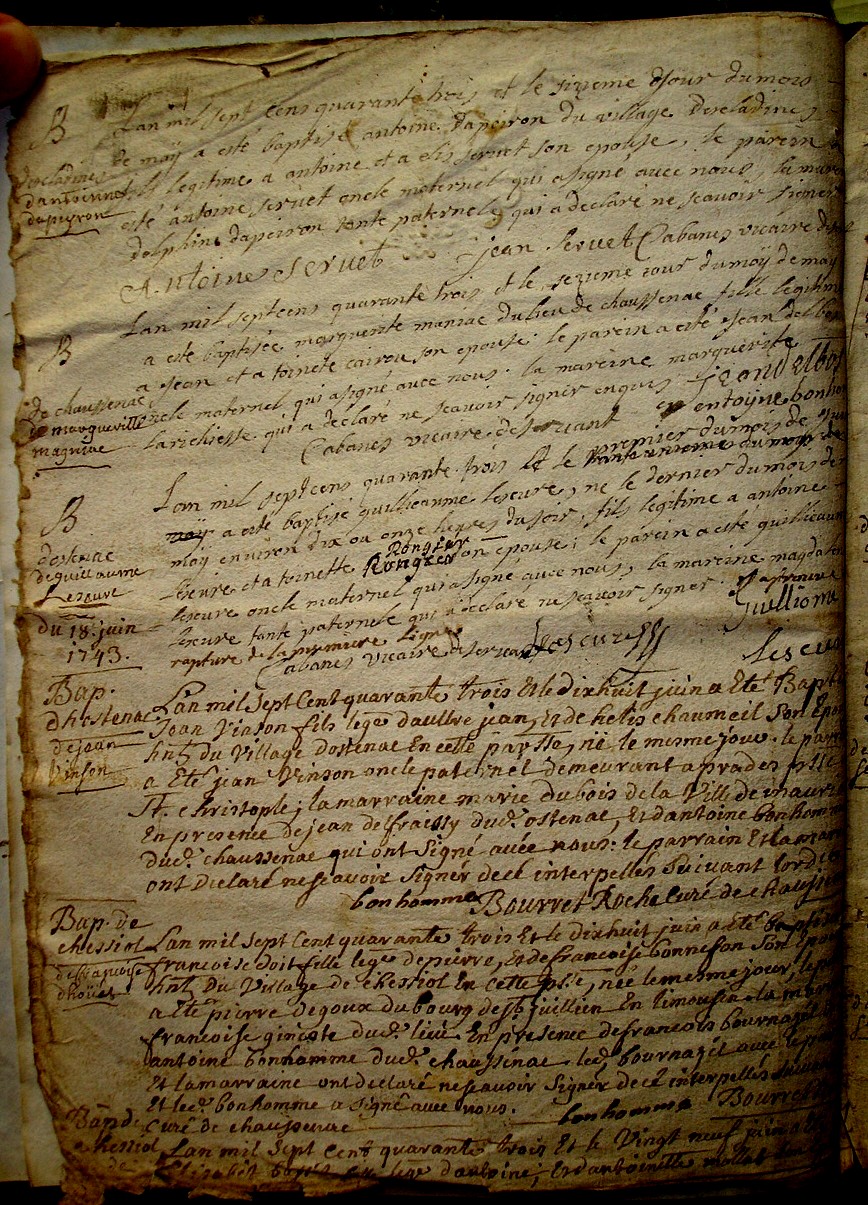 B
Lan mil sept cens quarante trois et le sixieme jour du mois
de may a esté baptisé antoine dapeiron du village descladines
descladines
dantoinne
dapeyron
fils legitime a antoine et a elis servet son epouse, le parein a
esté antoine servet oncle maternel qui a signé avec nous, la mareine
delphine dapeiron tante paternele qui a declaré ne scavoir signer
Antoine Servet jean Servet Cabanes vicaire
B
Lan mil septcens quarante trois et le sezieme jour du moy de may
a esté baptisée marguerite maniac du lieu de chaussenac fille legitime
a jean et a toinete cairou son epouse: le parein a esté jean delbos
de chaussenac
de marguerite
magniac
oncle maternel qui a signé avec nous. la mareine marguerite
larichesse qui a declaré ne scavoir signer enquis jean delbos
Cabanes vicaire deservant entoijne bonho
B
Lan mil septcens quarante trois et le premier du mois de
may a esté baptisé guilleaume lescure, ne le dernier du mois de
dostenac
de guillaume
Lescure
may environ dix ou onze heures du soir, fils legitime a antoine
lescure et a toinette Rongier son epouse; le parein a esté guilleaume
lescure oncle maternel qui a signé avec nous, la mareine magdalene
lescure tante paternele qui a declaré ne scavoir signer.
rapture de la premiere ligne Guilliome
Cabanes vicaire deservant Lescure
du 18: juin
1743.
Bap.
dhostenac
de jean
Vinson
Lan mil Sept Cent quarante trois Et le dixhuit juin a Eté Bapt
Jean Vinson fils lege daultre jean, Et de helis chaumeil Son Epou
hnt du Village dostenac En cette parsse, né le mesme jour. le parn
a Eté jean Vinson oncle paternel demeurant a prades psse
St. christople; la marraine marie dubois de la Ville de mauri
En presence de jean delfraissy dud. ostenac, Et dantoine bonhomme
dud. chaussenac qui ont Signé avec nous: le parrain Et la mar
ont declaré ne scavoir Signer de ce interpellés Suivant lord
bonhomme Bourret Roche Curé de chaussen
Bap. de
chessiol
de françoise
doit
Lan mil Sept Cent quarante trois Et le dixhuit juin a Eté
francoise doit fille lege de pierre, Et de francoise bonnefon Son Epou
hnt du Village de chessiol En cette psse, née le mesme jour, le
a Eté pierre degoux du bourg de St juillien En limousin la mar
francoise ginioste dud. lieu En presence de francois bournazel
antoine bonhomme dud. chaussenac led. bournazel avec le
Et la marraine ont declaré ne scavoir Signer de ce interpellés
Et led. bonhomme a Signé avec nous.
Curé de chaussenac bonhomme Bourret
Bap. de
chessiol
Lan mil Sept Cent quarante trois Et le Vingt neuf juin a
lege dantoine; Et dantoinette